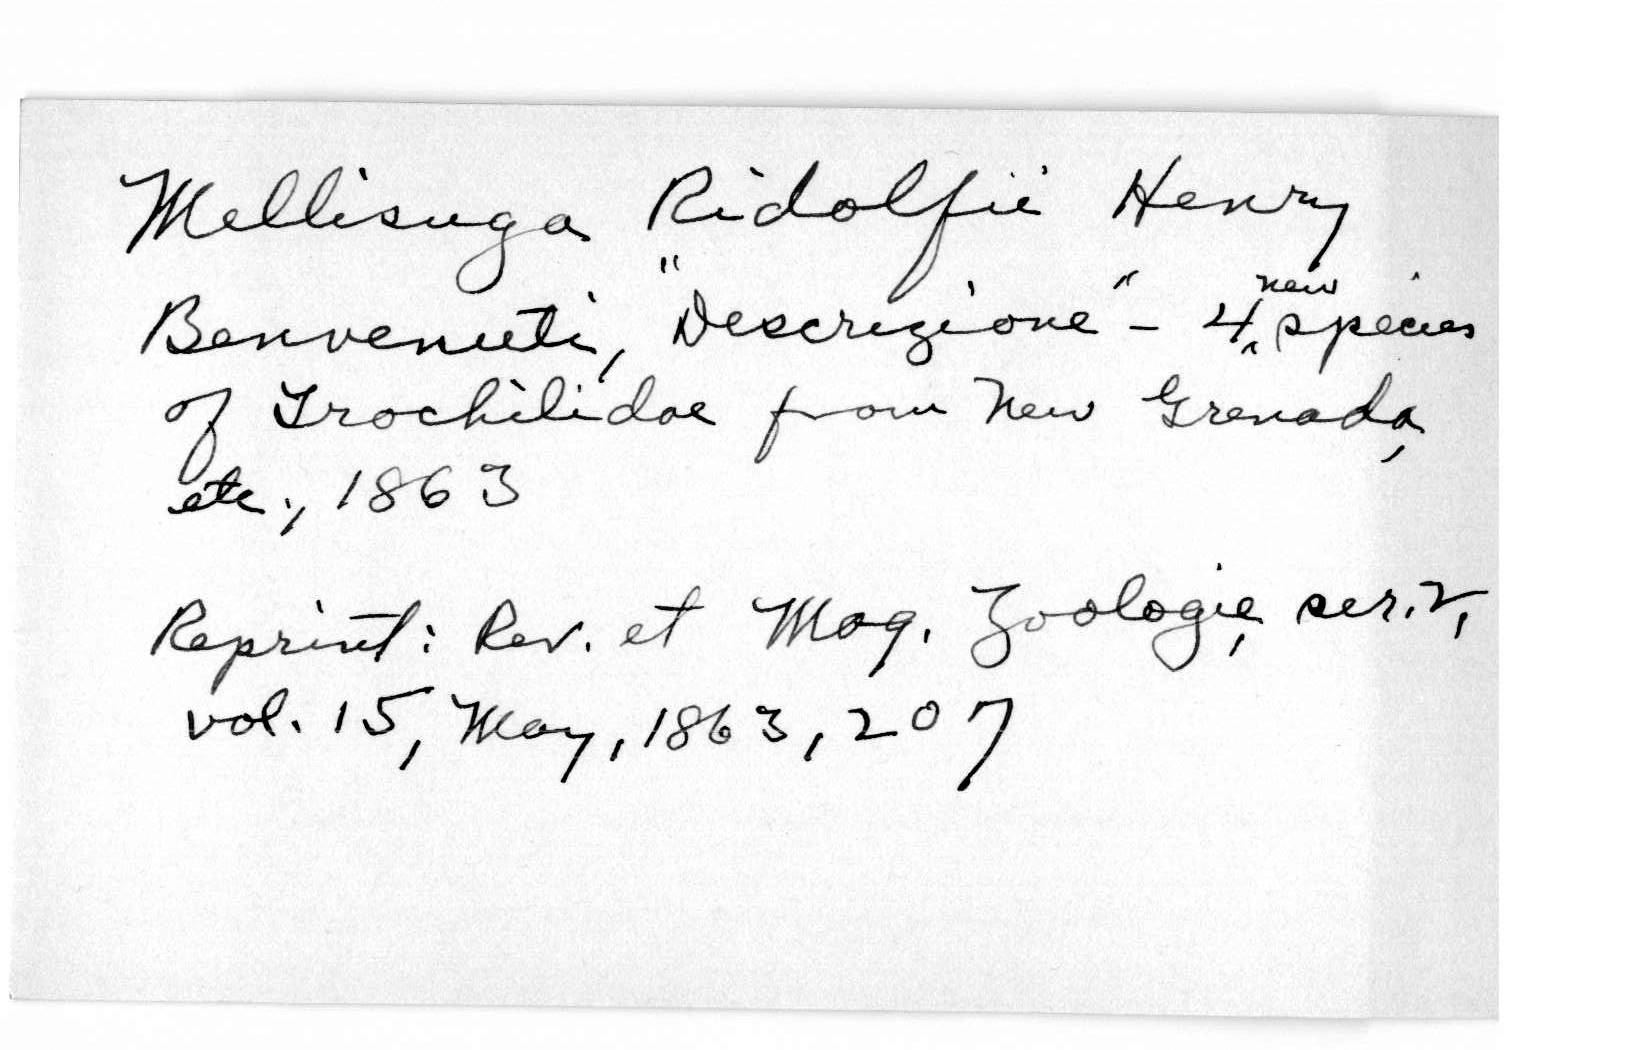 Mellisuga Ridolfii Henry
Benvenuti, "Descrizione" - 4 new species
of Trochilidae from New Grenada,
etc., 1863
Reprint: Rev. et Mag. Zoologie, ser. 2,
vol. 15, May, 1863, 207